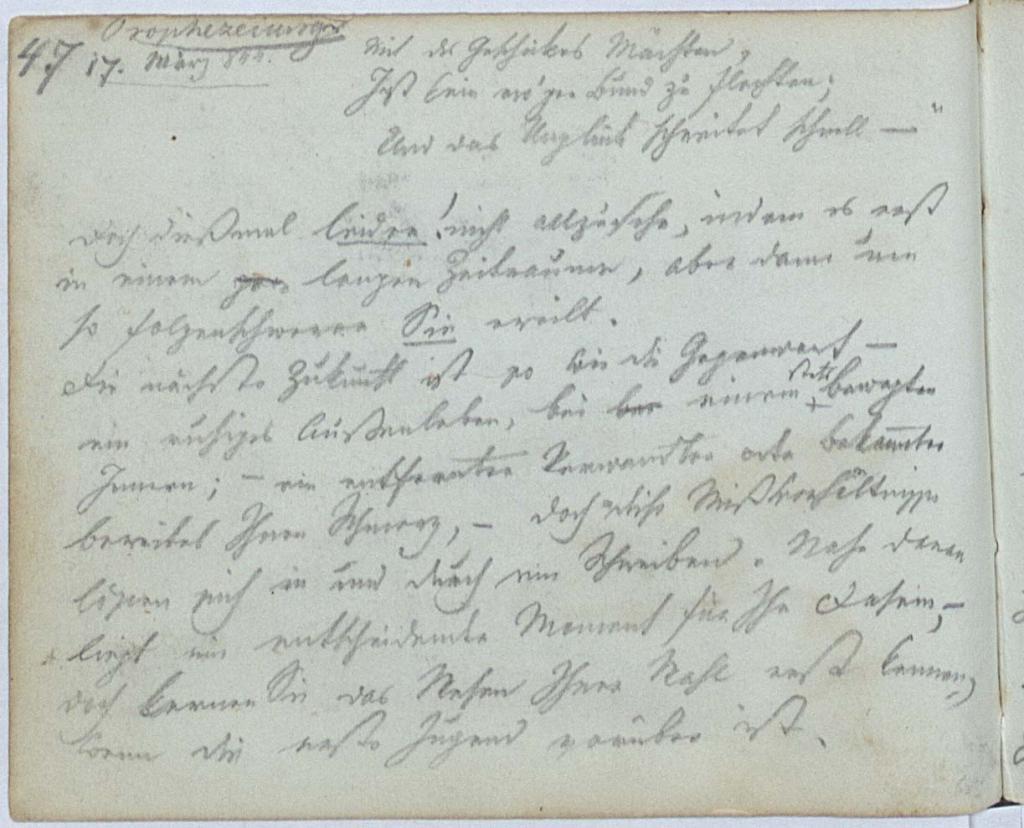 47 Prophezeiungen
17. März 844.
Mit des Geschickes Mächten,
Ist kein ew'ger Bund zu flechten;
Und das Unglück schreitet schnell — "
Doch dießmal leider! nicht allzusehr, indem es erst
in einem langen Zeitraume, aber dann um
so folgenschwerer Sie ereilt.
Die nächste Zukunft ist so wie die Gegenwart —
ein ruhiges Außenleben, bei einem stets bewegten
Innern; — ein entfernter Verwandter oder Bekannter
bereitet Ihnen Schmerz, — doch Mißverhältnisse
lösen sich in und durch ein Schreiben. Nahe daran
liegt ein entscheidender Moment für Ihr Dasein, —
doch lernen Sie das Ihrer Wahl erst kennen,
wenn die erste Jugend vorüber ist.